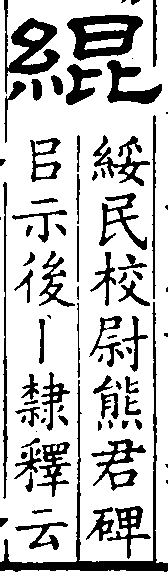 緄
綏民校尉熊君碑
㠯示後丨隸釋云